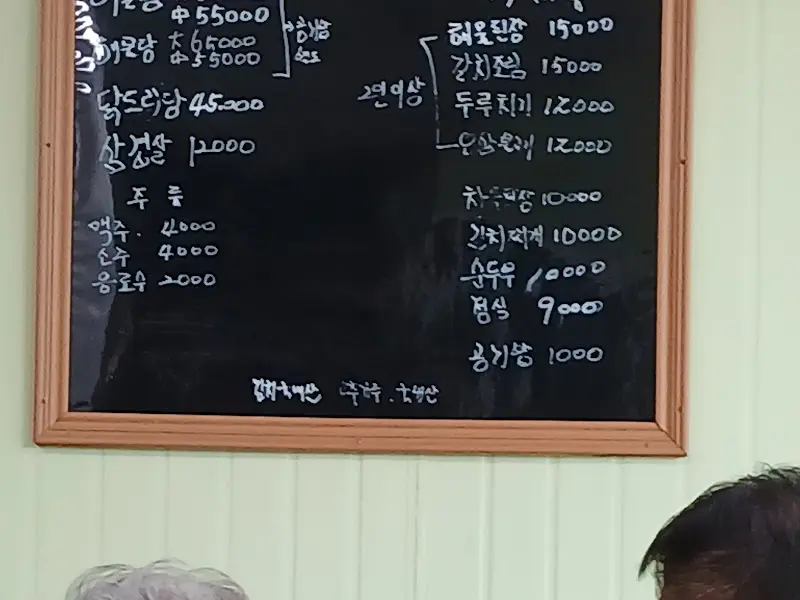 中 55000
해물탕 大 65000
中 55000
공기밥
별도
닭도리탕 45.000
삼겹살 12000
주 류
맥주. 4000
소주 4000
음료수 2000
해물된장 15000
갈치조림 15000
2인이상
두루치기 12000
12000
10000
김치찌개 10000
순두부 10000
정식 9000
공기밥 1000
국내산
국내산